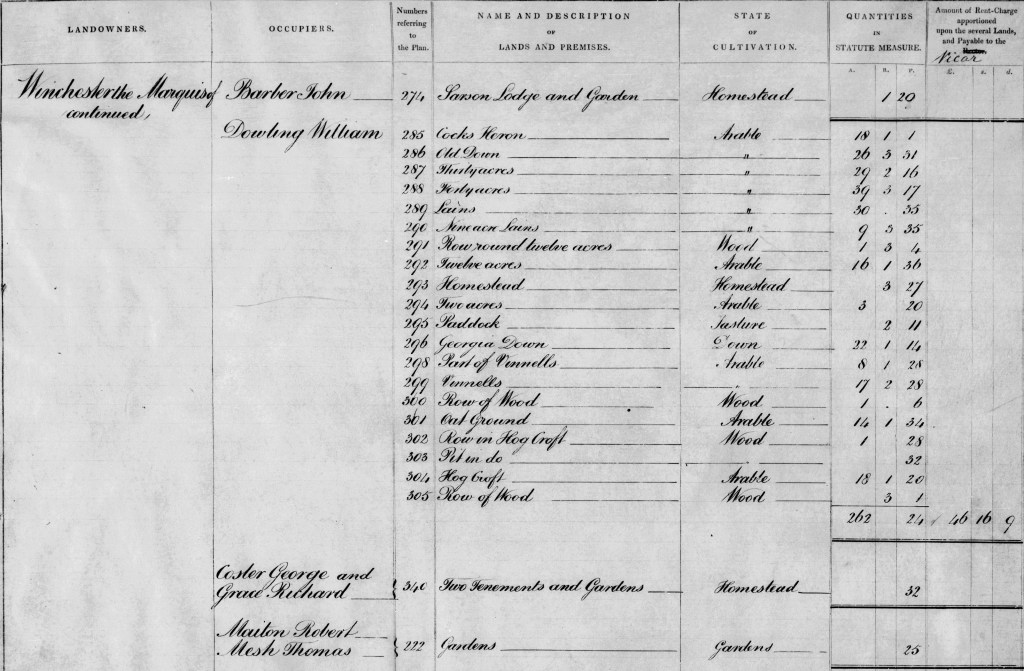 LANDOWNERS. OCCUPIERS. Numbers referring to the Plan. NAME AND DESCRIPTION OF LANDS AND PREMISES. STATE OF CULTIVATION. QUANTITIES IN STATUTE MEASURE. Amount of Rent-Charge apportioned upon the several Lands, and Payable to the Vicar
A. R. P. £. s. d.
Winchester the Marquis of Barber John 274 Sarson Lodge and Garden Homestead 1 20
continued,
Dowling William 285 Cocks Heron Arable 18 1 1
286 Old Down " 26 3 31
287 Thirty acres " 29 2 16
288 Forty acres " 39 3 17
289 Lains " 30 . 35
290 Nine acre Lains " 9 3 35
291 Row round twelve acres Wood 1 3 4
292 Twelve acres Arable 16 1 36
293 Homestead Homestead 3 27
294 Two acres Arable 3 20
295 Paddock Pasture 2 11
296 Georgia Down Down 22 1 14
298 Part of Vinnells Arable 8 1 28
299 Vinnells " 17 2 28
300 Row of Wood Wood 1 . 6
301 Out Ground Arable 14 1 34
302 Row in Hog Croft Wood 1 28
303 Pit in do 32
304 Hog Croft Arable 18 1 20
305 Row of Wood Wood 3 1
262 24 46 16 9
Coster George and
Grace Richard 340 Two Tenements and Gardens Homestead 32
Maiton Robert
Mesh Thomas 222 Gardens Gardens 25